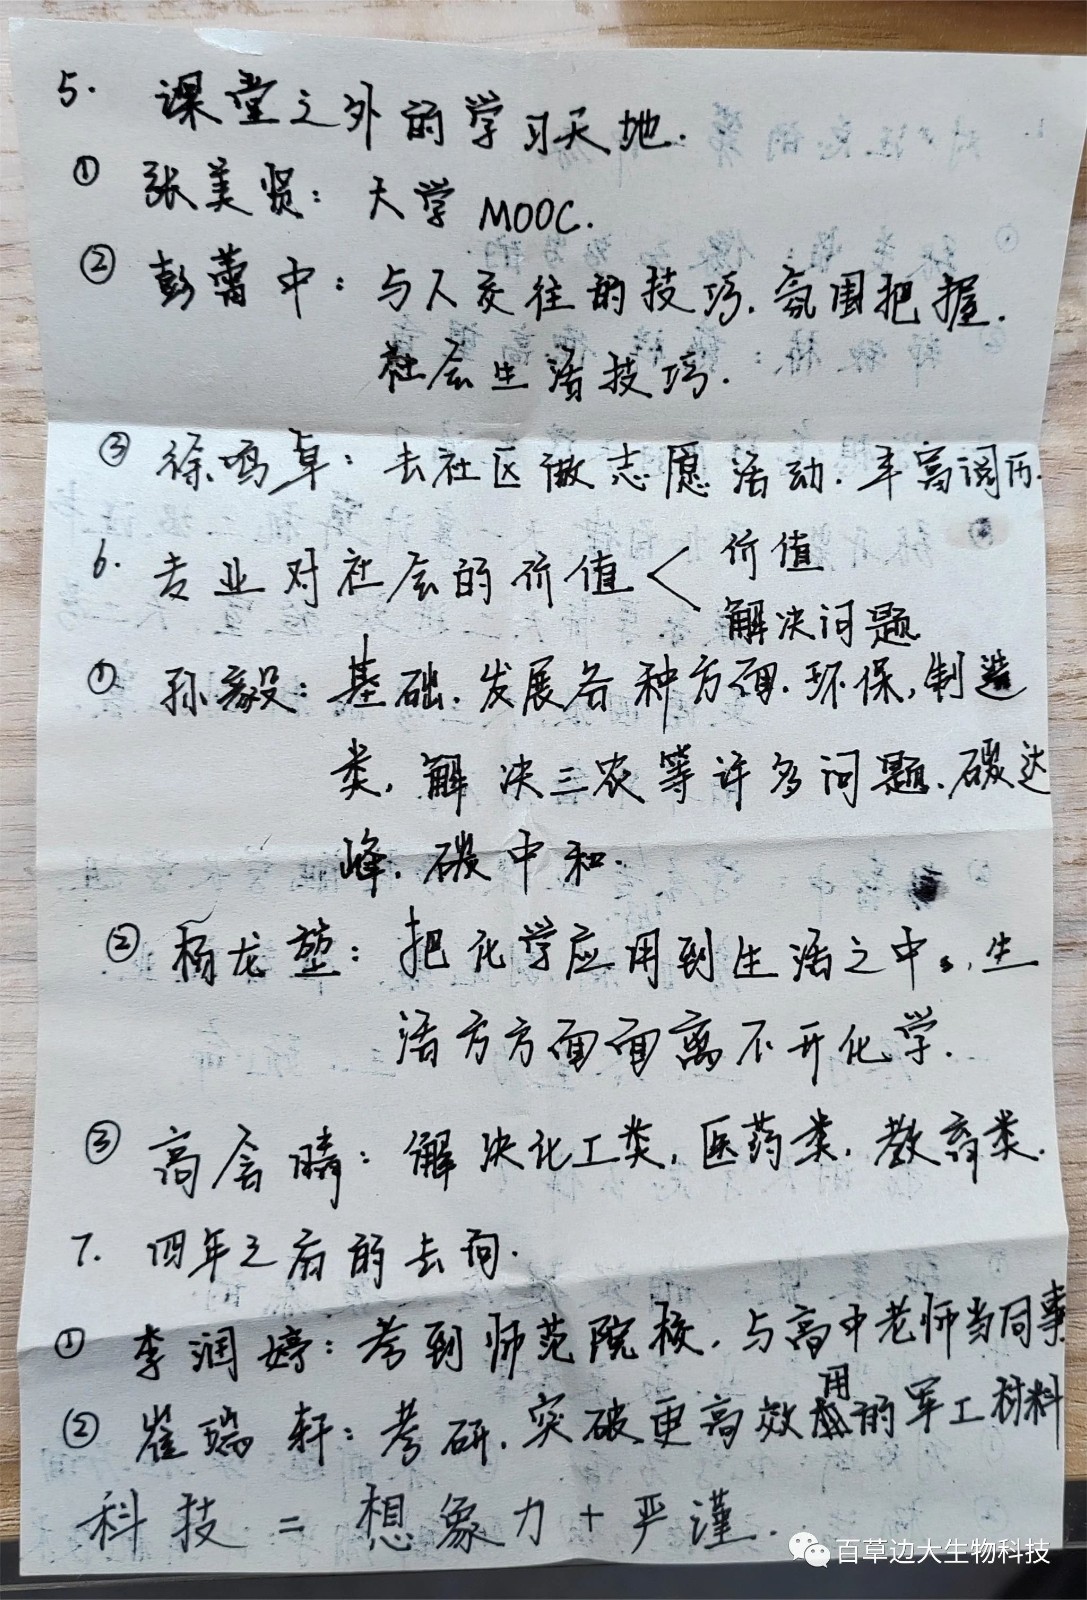 5. 课堂之外的学习天地.
① 张美贤: 大学 MOOC.
② 彭蕾中: 与人交往的技巧. 氛围把握.
社会生活技巧.
③ 徐鸣卓: 去社区做志愿活动. 丰富阅历.
6. 专业对社会的价值 < 价值
解决问题
① 孙毅: 基础. 发展各种方面. 环保, 制造
类, 解决三农等许多问题. 碳达
峰. 碳中和.
② 杨龙堃: 把化学应用到生活之中. 生
活方方面面离不开化学.
③ 高含晴: 解决化工类, 医药类, 教育类.
7. 四年之后的去向.
① 李润婷: 考到师范院校, 与高中老师当同事
② 崔瑞轩: 考研, 突破更高效用的军工材料
科技 = 想象力 + 严谨.
百草边大生物科技